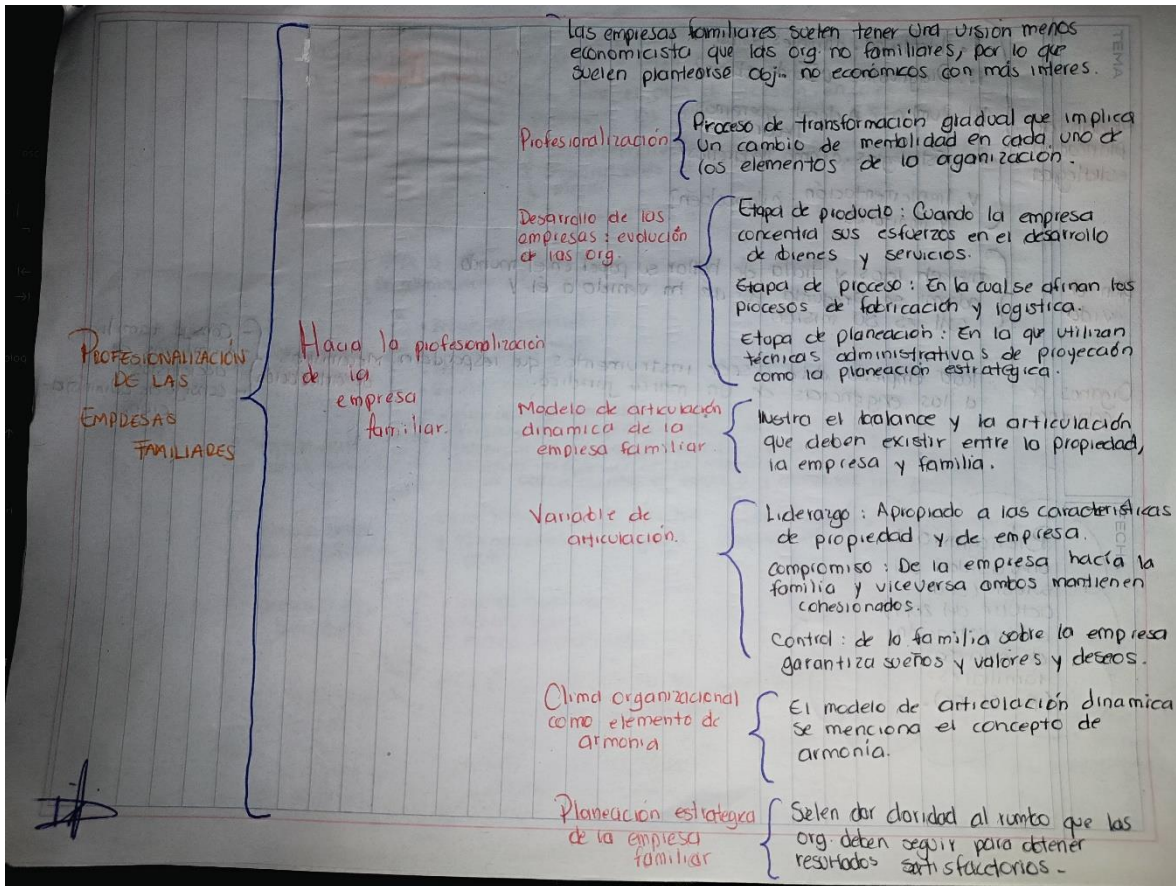 las empresas familiares suelen tener una visión menos
economicista que las org. no familiares, por lo que
suelen plantearse obj. no económicos con más interes.
Profesionalización
Proceso de transformación gradual que implica
un cambio de mentalidad en cada uno de
los elementos de la oganización.
Desarrollo de las
empresas: evolución
de las org.
Etapa de producto: Cuando la empresa
concentra sus esfuerzos en el desarrollo
de bienes y servicios.
Etapa de proceso: En la cual se afinan los
procesos de fabricación y logistica.
Etapa de planeación: En la que utilizan
técnicas administrativas de proyección
como la planeación estratégica.
PROFESIONALIZACIÓN
DE LAS
EMPRESAS
FAMILIARES
Hacia la profesionalización
de la
empresa
familiar.
Modelo de articulación
dinamica de la
empresa familiar
Ilustra el balance y la articulación
que deben existir entre la propiedad,
la empresa y familia.
Variable de
articulación.
Liderazgo: Apropiado a las características
de propiedad y de empresa.
compromiso: De la empresa hacía la
familia y viceversa ambos mantienen
cohesionados.
Control: de la familia sobre la empresa
garantiza sueños y valores y deseos.
Clima organizacional
como elemento de
armonia
El modelo de articulación dinamica
se menciona el concepto de
armonía.
Planeación estrategica
de la empresa
familiar
Selen dar claridad al rumbo que las
org. deben seguir para obtener
resultados satisfactorios.
TEMA